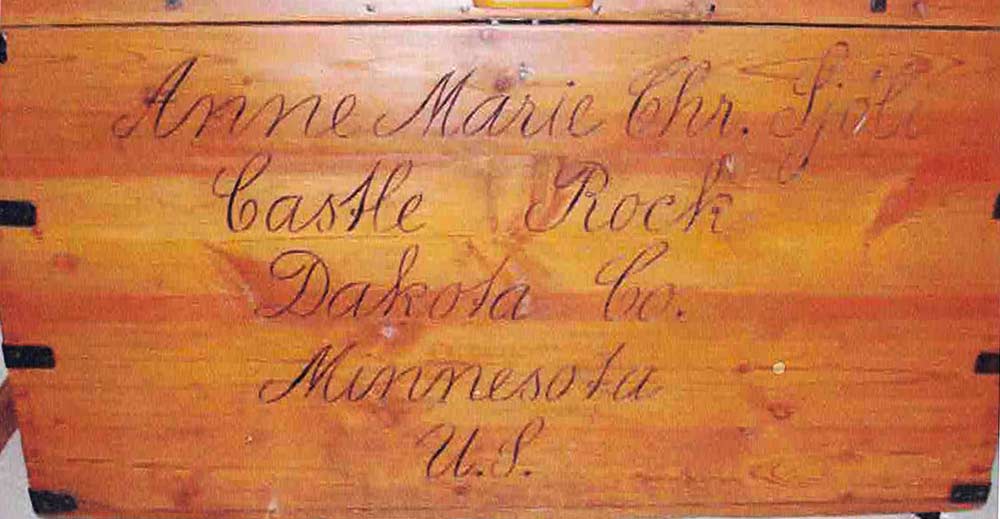 Anne Marie Chr. Sjöli
Castle Rock
Dakota Co.
Minnesota
U.S.